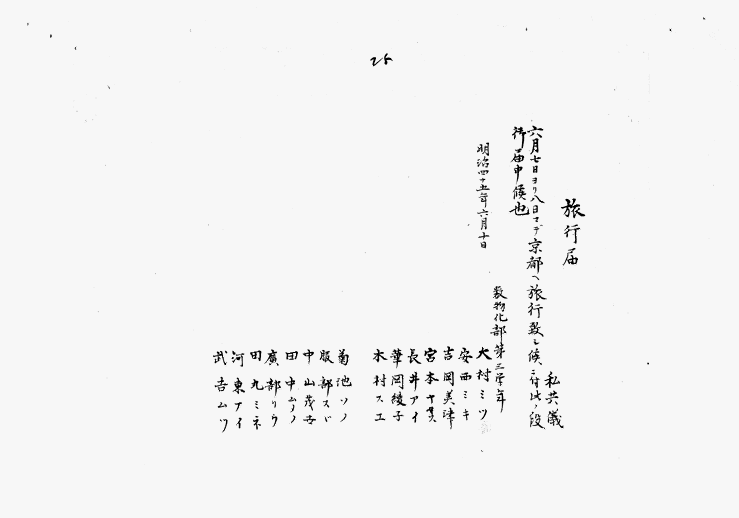 25
旅行届
私共儀
六月七日ヨリ八日マデ京都ヘ旅行致シ候ニ付此ノ段
御届申候也
明治四十五年六月十日
数物化部第三学年
大村ミツ
安西ミキ
吉岡美津
宮本ヤス
長井アイ
華岡綾子
木村スエ
菊池ソノ
服部スヾ
中山茂
田中ムメノ
廣部リウ
田丸ミネ
河東アイ
武吉ムツ